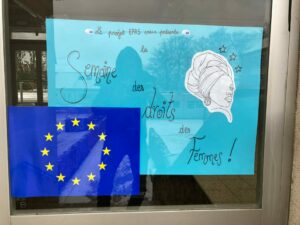 Le projet EPAS vous présente
la
Semaine
des
droits
des
Femmes !